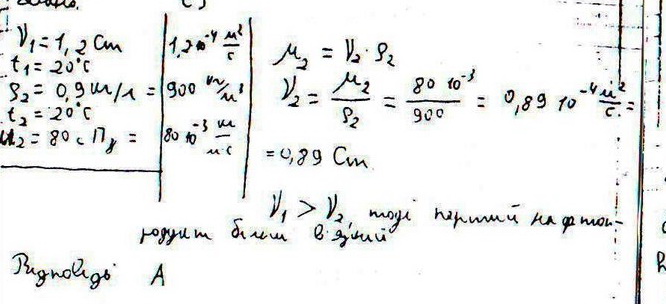 ν₁ = 1,2 Ст | 1,2·10⁻⁴ м²/с
t₁ = 20°C
ρ₂ = 0,9 кг/л = | 900 кг/м³
t₂ = 20°C
μ₂ = 80 сПз = | 80·10⁻³ кг/мс
μ₂ = ν₂ · ρ₂
ν₂ = μ₂/ρ₂ = 80·10⁻³/900 = 0,89·10⁻⁴ м²/с =
= 0,89 Ст
ν₁ > ν₂, тоді перший нафтоп-
родукт більш в'язкий
Відповідь А